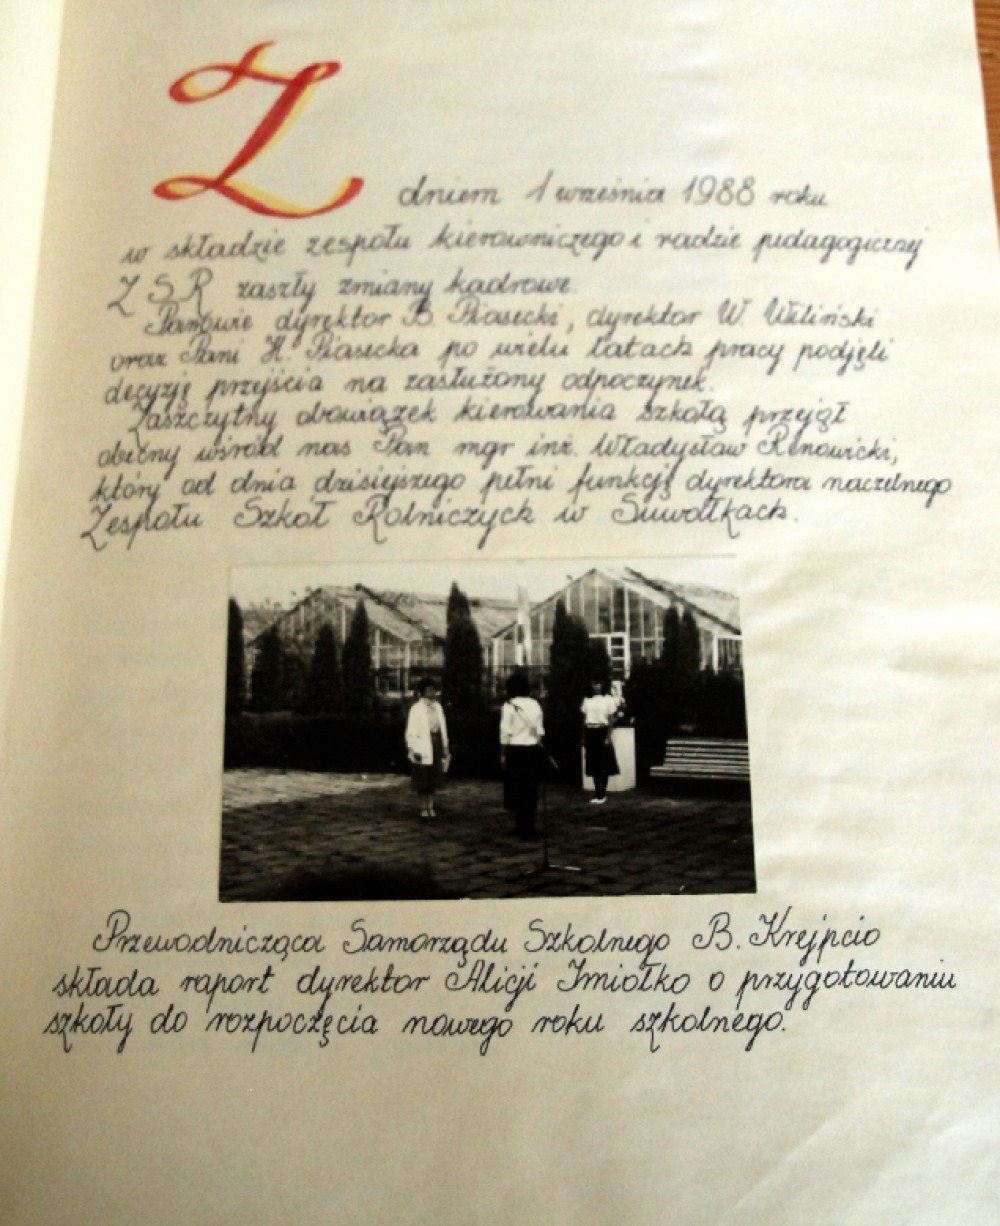 Z dniem 1 września 1988 roku
w składzie zespołu kierowniczego i radzie pedagogicznej
Z S R zaszły zmiany kadrowe.
Panowie dyrektor B. Piasecki, dyrektor W. Wiliński
oraz Pani H. Piasecka po wielu latach pracy podjęli
decyzję przejścia na zasłużony odpoczynek.
Zaszczytny obowiązek kierowania szkołą przejął
obecny wśród nas Pan mgr inż. Władysław Renowicki,
który od dnia dzisiejszego pełni funkcję dyrektora naczelnego
Zespołu Szkół Rolniczych w Suwałkach.
Przewodnicząca Samorządu Szkolnego B. Krejpcio
składa raport dyrektor Alicji Imiołko o przygotowaniu
szkoły do rozpoczęcia nowego roku szkolnego.